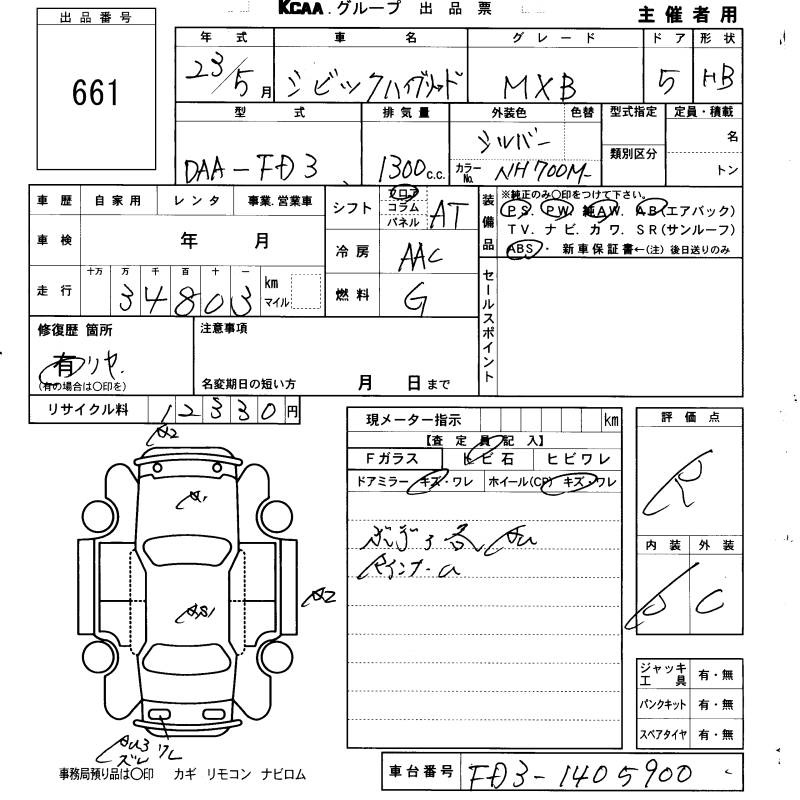 KCAA.グループ 出品票
主催者用
出品番号
661
年式 車名 グレード ドア 形状
23/5月 シビックハイブリッド MXB 5 HB
型式 排気量 外装色 色替 型式指定 定員・積載
類別区分 名 トン
DAA-FD3 1300c.c. シルバー カラーNo. NH700M-
車歴 自家用 レンタ 事業.営業車
車検 年 月
走行 十万 万 千 百 十 一 km マイル
34803
シフト フロア コラム パネル AT
冷房 AAC
燃料 G
装備品
※純正のみ〇印をつけて下さい。
PS. PW. 純AW. AB(エアバック)
TV. ナビ. カワ. SR(サンルーフ)
ABS・ 新車保証書←(注)後日送りのみ
セールスポイント
修復歴 箇所
有 リヤ.
(有の場合は〇印を)
注意事項
名変期日の短い方 月 日まで
リサイクル料 12330円
現メーター指示 km
【査定員記入】
Fガラス トビ石 ヒビワレ
ドアミラー キズ・ワレ ホイール(CP) キズ・ワレ
評価点
R
内装 外装
C
A2
A1
A2
AU3 ワレ
ズレ
ジャッキ工具 有・無
パンクキット 有・無
スペアタイヤ 有・無
事務局預り品は〇印 カギ リモコン ナビロム
車台番号 FD3-1405900